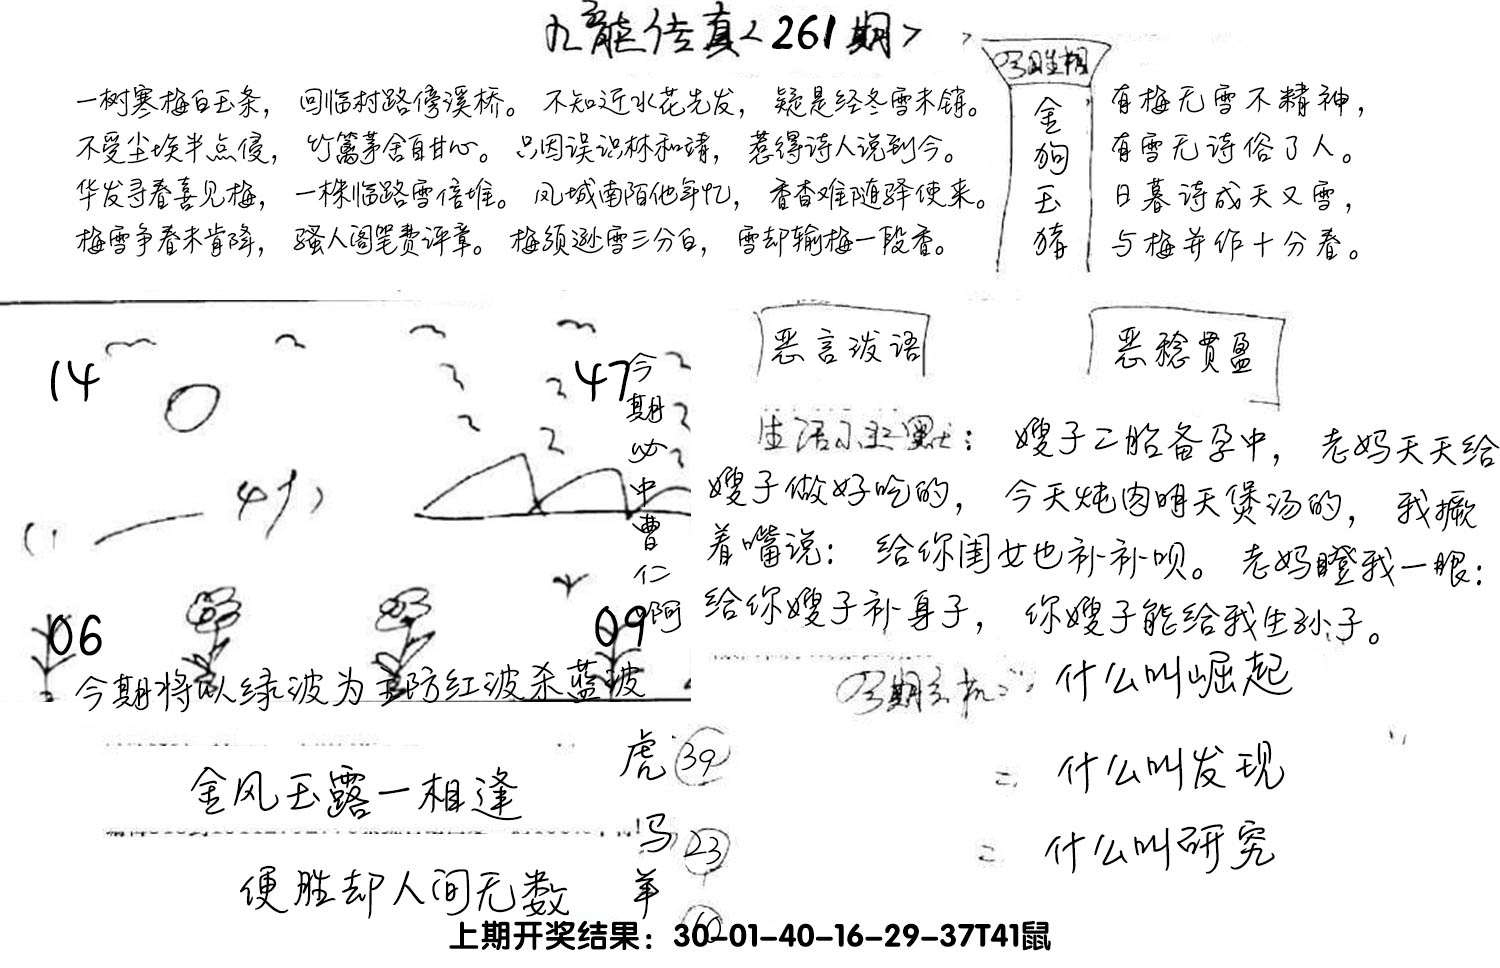 九龙传真<261期>
一树寒梅白玉条， 回临村路傍溪桥。 不知近水花先发， 疑是经冬雪未销。
不受尘埃半点侵， 竹篱茅舍自甘心。 只因误识林和靖， 惹得诗人说到今。
华发寻春喜见梅， 一株临路雪倍堆。 凤城南陌他年忆， 香香难随驿使来。
梅雪争春未肯降， 骚人阁笔费评章。 梅须逊雪三分白， 雪却输梅一段香。
金狗玉猪
有梅无雪不精神，
有雪无诗俗了人。
日暮诗成天又雪，
与梅并作十分春。
14
47
今期必中曹仁啊
06
09
今期将以绿波为主防红波杀蓝波
恶言泼语
恶稔贯盈
嫂子二胎备孕中， 老妈天天给
嫂子做好吃的， 今天炖肉明天煲汤的， 我撅
着嘴说： 给你闺女也补补呗。 老妈瞪我一眼：
给你嫂子补身子， 你嫂子能给我生孙子。
什么叫崛起
二 什么叫发现
什么叫研究
金风玉露一相逢
便胜却人间无数
虎 39
马 23
羊
上期开奖结果：30-01-40-16-29-37T41鼠